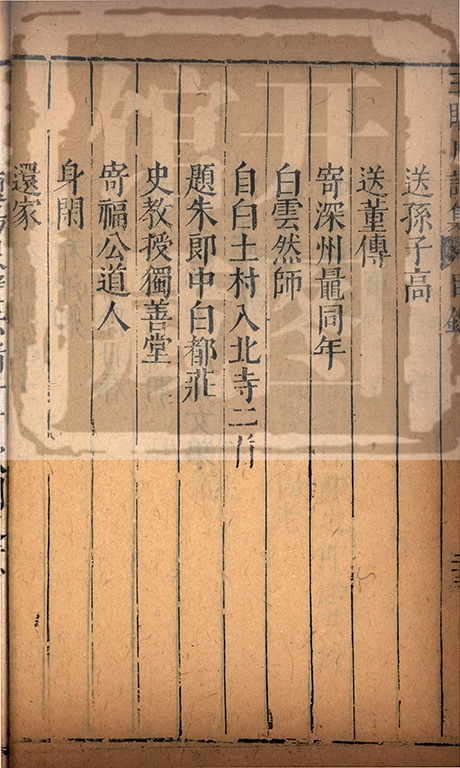 送孫子高
送董傳
寄深州鼂同年
白雲然師
自白土村入北寺二首
題朱郎中白都莊
史教授獨善堂
寄福公道人
身閑
還家